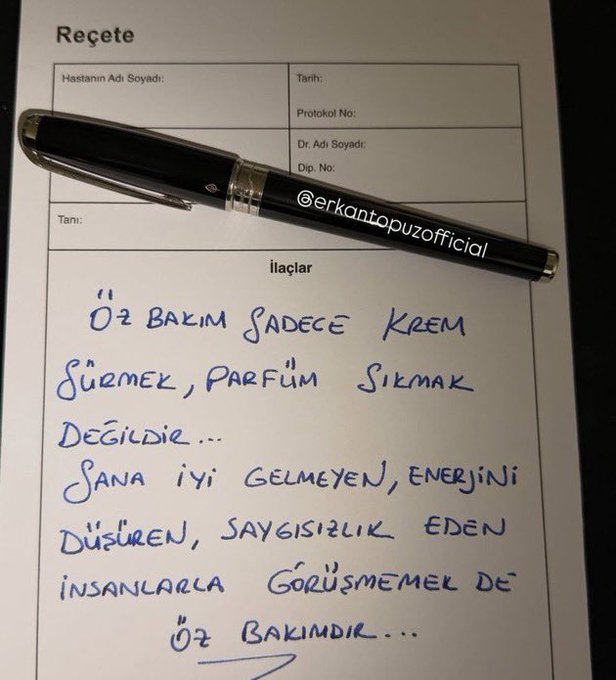 Reçete
Hastanın Adı Soyadı:
Tarih:
Protokol No:
Dr. Adı Soyadı:
Dip. No:
@erkantopuzofficial
Tanı:
İlaçlar
ÖZ BAKIM SADECE KREM
SÜRMEK, PARFÜM SIKMAK
DEĞİLDİR...
SANA İYİ GELMEYEN, ENERJİNİ
DÜŞÜREN, SAYGISIZLIK EDEN
İNSANLARLA GÖRÜŞMEMEK DE
ÖZ BAKIMDIR...